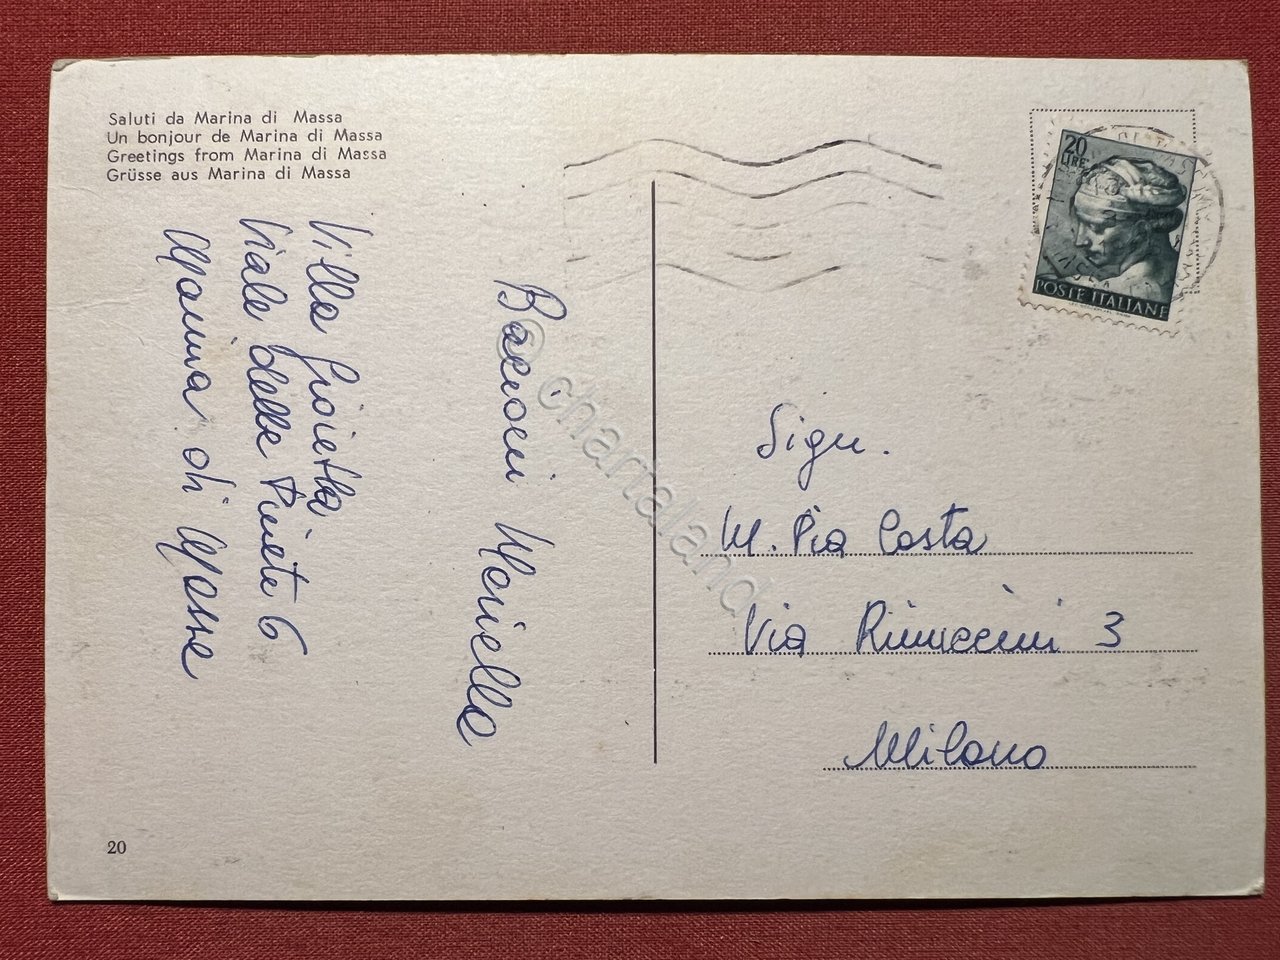 Saluti da Marina di Massa
Un bonjour de Marina di Massa
Greetings from Marina di Massa
Grüsse aus Marina di Massa
Villa Gioietta
Viale delle Pinete 6
Marina di Massa
Bacioni Mariella
20
LIRE
POSTE ITALIANE
Sign.
M. Pia Costa
Via Rinuccini 3
Milano
20
© chartaland